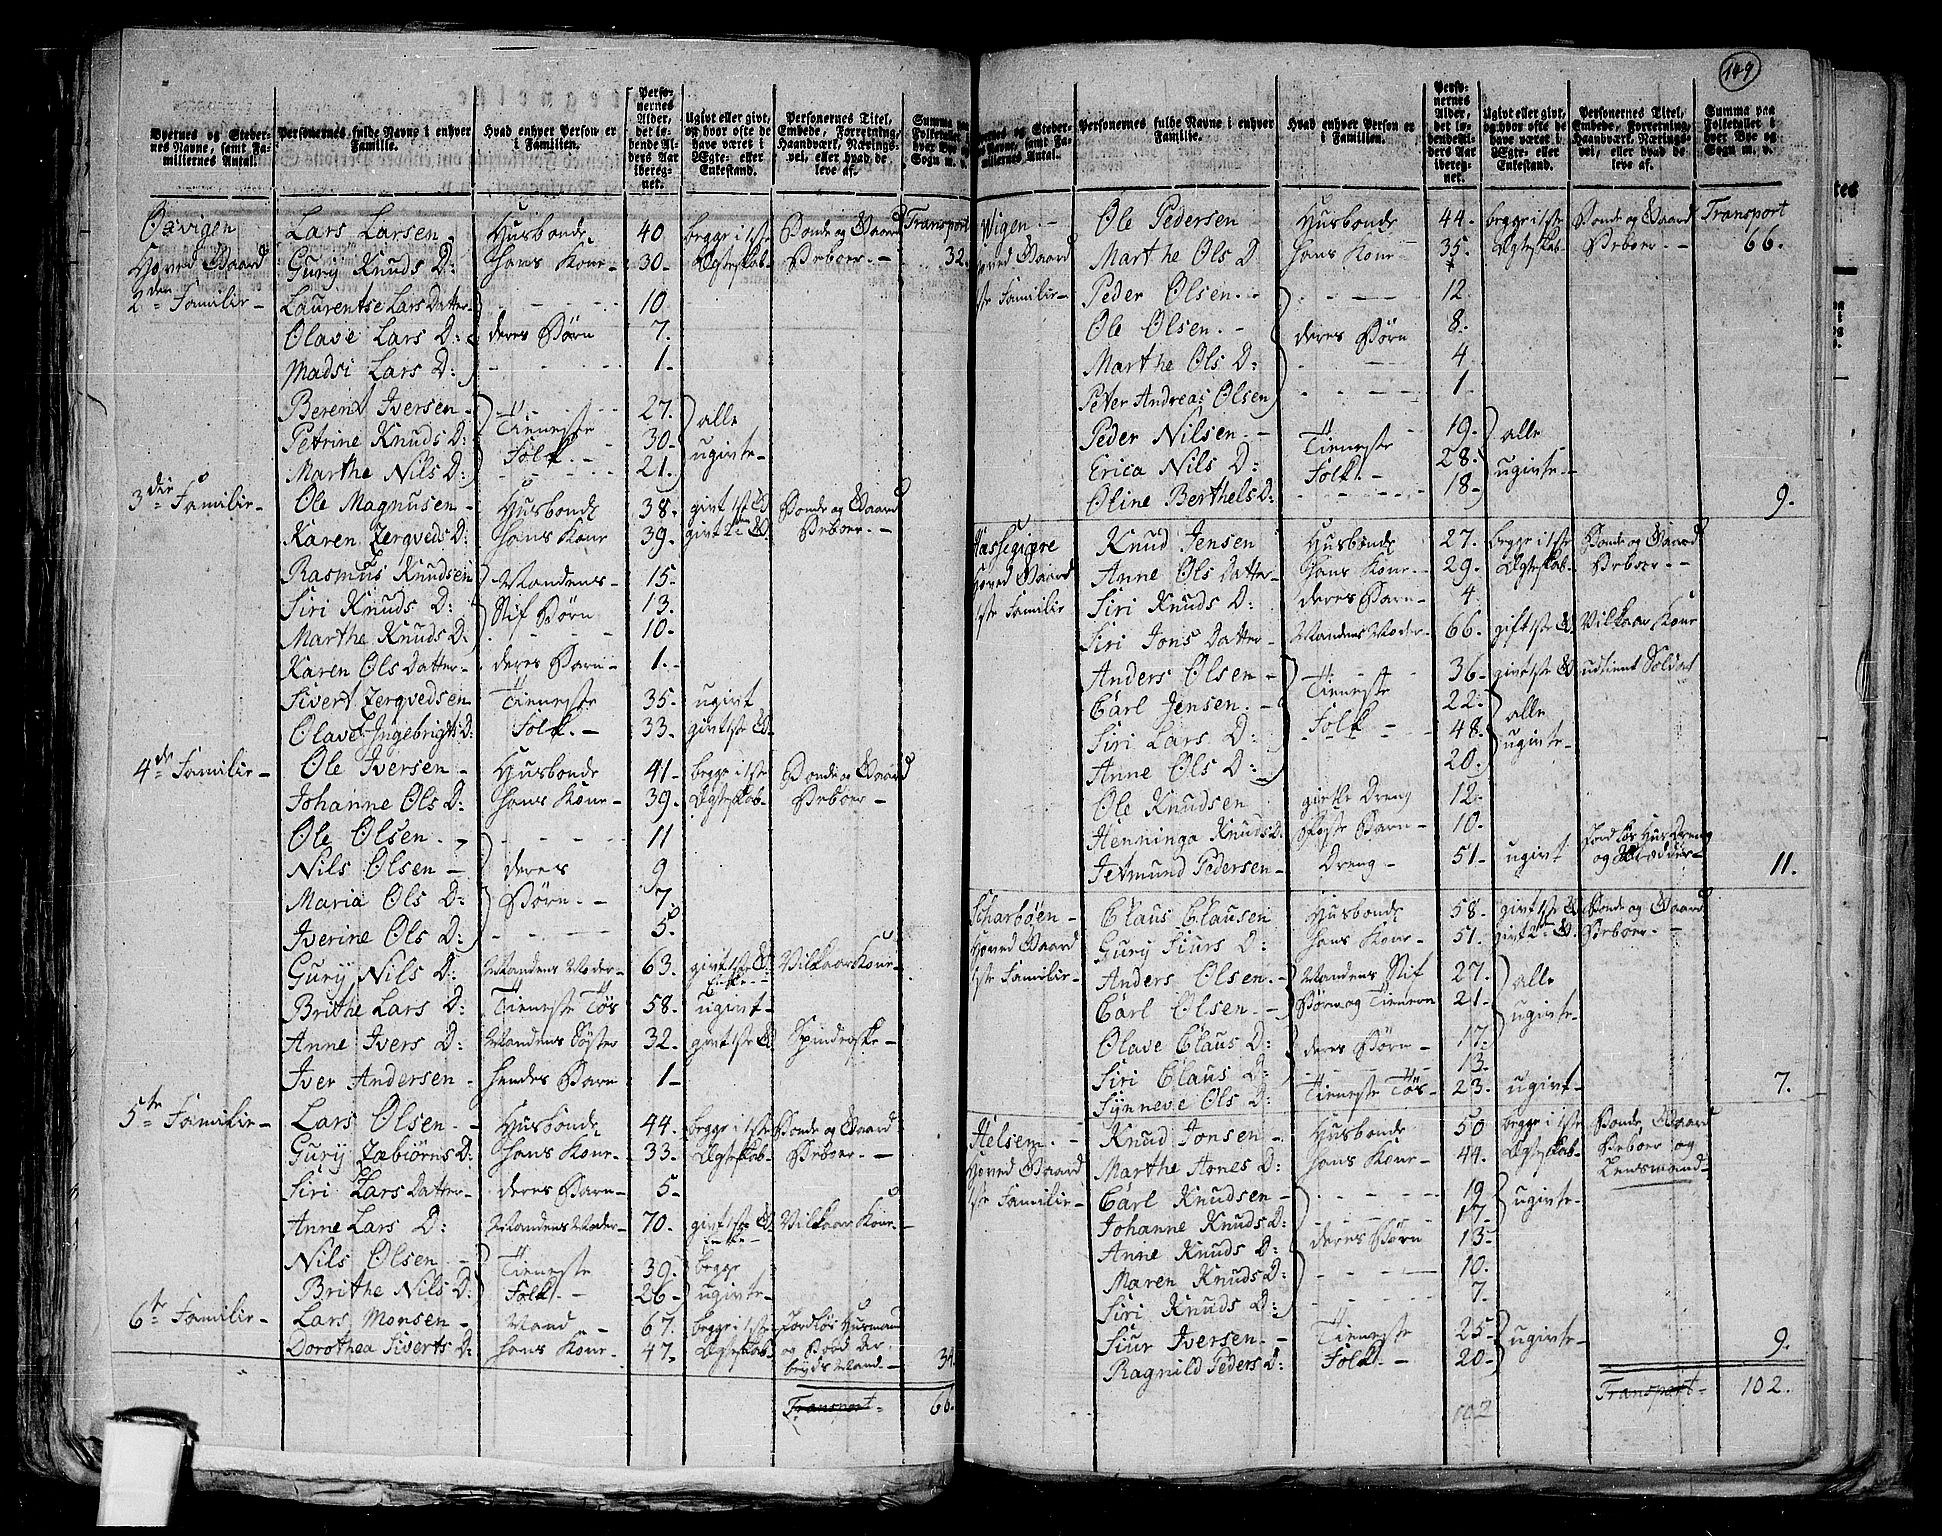 149
Byernes og Steder-
nes Navne, samt Fa-
miliernes Antal.
Personernes fulde Navne i enhver
Familie.
Hvad enhver Person er
i Familien.
Perso-
nernes
Alder,
det lø-
bende Al-
ders Aar
iberegnet.
Ugivt eller givt,
og hvor ofte de
have været i
Ægte- eller
Enkestand.
Personernes Titel,
Embede, Forretning,
Haandværk, Nærings-
vei, eller hvad de
leve af.
Summa paa
Folketallet i
hver Bye og
Sogn m. v.
Øxvigen Lars Larsen Husbonde 40 begge i 1ste Bonde og Gaard Transport
Hoved Gaard Gury Knuds D: hans Kone 30 Ægteskab Beboer 32
2den Familie Laurentse Lars Datter 10
Olave Lars D: deres Børn 7
Madsi Lars D: 1
Berent Iversen Tieneste 27 alle
Petrine Knuds D: Folk 30 ugivte
Marthe Nils D: 21
3die Familie Ole Magnusen Husbonde 38 givt 1ste G Bonde og Gaard
Karen Zergveds D: hans Kone 39 givt 2den G Beboer
Rasmus Knudsen Mandens 15
Siri Knuds D: Stif Børn 13
Marthe Knuds D: 10
Karen Ols Datter deres Barn 1
Sivert Zergvedsen Tieneste 35 ugivt
Olave Ingebrigts D: Folk 33 givt 1ste G
4de Familie Ole Iversen Husbonde 41 begge i 1ste Bonde og Gaard
Johanne Ols D: hans Kone 39 Ægteskab Beboer
Ole Olsen 11
Nils Olsen deres 9
Maria Ols D: Børn 7
Iverine Ols D: 5
Gury Nils D: Mandens Moder 63 givt 1ste G Vilkaar Kone
Enke
Brithe Lars D: Tieneste Tøs 58 ugivt
Anne Ivers D: Mandens Søster 32 givt 1ste G Spinderske
Iver Andersen hendes Barn 1
5te Familie Lars Olsen Husbonde 44 begge i 1ste Bonde og Gaard
Gury Zabiørns D: hans Kone 33 Ægteskab Beboer
Siri Lars Datter deres Barn 5
Anne Lars D: Mandens Moder 70 givt 1ste G Vilkaar Kone
Enke
Nils Olsen Tieneste 39 begge
Brithe Nils D: Folk 26 ugivte
6te Familie Lars Monsen Mand 67 begge i 1ste Jordløs Husmand
Dorothea Siverts D: hans Kone 47 Ægteskab
34
Transport 66
Byernes og Steder-
nes Navne, samt Fa-
miliernes Antal.
Personernes fulde Navne i enhver
Familie.
Hvad enhver Person er
i Familien.
Perso-
nernes
Alder,
det lø-
bende Al-
ders Aar
iberegnet.
Ugivt eller givt,
og hvor ofte de
have været i
Ægte- eller
Enkestand.
Personernes Titel,
Embede, Forretning,
Haandværk, Nærings-
vei, eller hvad de
leve af.
Summa paa
Folketallet i
hver Bye og
Sogn m. v.
Wigen Ole Pedersen Husbonde 44 begge i 1ste Bonde og Gaard Transport
Hoved Gaard Marthe Ols D hans Kone 35 Ægteskab Beboer 66
1ste Familie Peder Olsen 12
Ole Olsen deres Børn 8
Marthe Ols D: 4
Peter Andreas Olsen 1
Peder Nilsen Tieneste 19 alle
Erica Nils D: Folk 28 ugivte
Oline Berthels D: 18 9
Hassegiære Knud Jensen Husbonde 27 begge i 1ste Bonde og Gaard
Hoved Gaard Anne Ols Datter hans Kone 29 Ægteskab Beboer
1ste Familie Siri Knuds D: deres Barn 4
Siri Jons Datter Mandens Moder 66 gift 1ste G. Vilkaar Kone
Anders Olsen Tieneste 36 givt 1ste G udtient Soldat
Carl Jensen Folk 22 alle
Siri Lars D: 48 ugivte
Anne Ols D: 20
Ole Knudsen giette Dreng 12
Henninga Knuds D: Barn 10
Jetmund Pedersen Dreng 51 ugivt Jordløs Hus Dreng
11
Scharbøen Claus Clausen Husbonde 58 givt 1ste G Bonde og Gaard
Hoved Gaard Gury Siurs D: hans Kone 51 givt 2de G. Beboer
1ste Familie Anders Olsen Mandens Stif 27 alle
Carl Olsen Børn og Tienere 21 ugivte
Olave Claus D: deres Børn 17
Siri Claus D: 13
Synneve Ols D: Tieneste Tøs 23 ugivt 7
Helsem Knud Jonsen Husbonde 50 begge i 1ste Bonde, Gaard
Hoved Gaard Marthe Anes D: hans Kone 44 Ægteskab Beboer og
1ste Familie Carl Knudsen 19 ugivte Lensmand
Johanne Knuds D: 17
Anne Knuds D: deres Børn 13
Maren Knuds D: 10
Siri Knuds D: 7
Siur Iversen Tieneste 25 ugivte
Ragnild Peders D: Folk 20 9
Transport 102
102